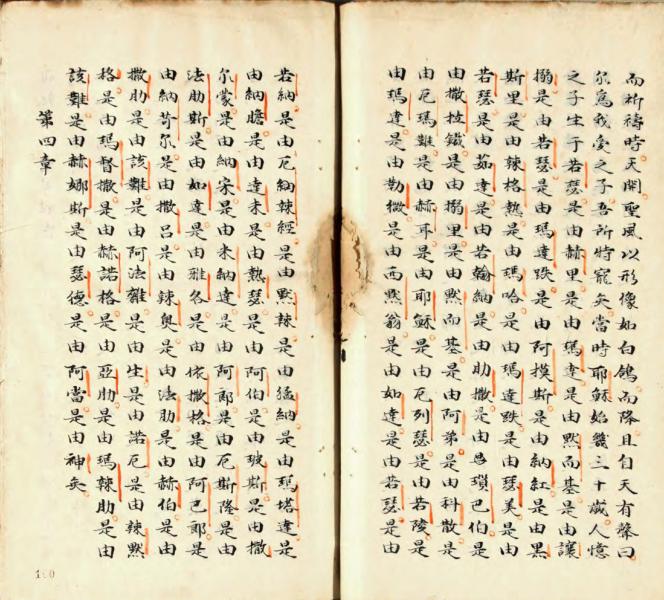 而祈禱時天開聖風以形像如白鴿而降且自天有聲曰
尔為我愛之子吾所特寵矣當時耶穌始幾三十歲人憶
之子生于若瑟是由赫里是由瑪達是由默而基是由讓
搦是由若瑟是由瑪達趺是由阿摸斯是由納紅是由黑
斯里是由辣格熱是由瑪哈是由瑪達趺是由瑟美是由
若瑟是由茹達是由若翰納是由肋撒是由瑣巴伯是
由撒拉鐵是由搦里是由默而基是由阿弟是由科散是
由厄瑪難是由赫耳是由耶穌是由厄列瑟是由若陵是
由瑪達是由勒微是由西默翁是由如達是由若瑟是由
若納是由厄納辣經是由默辣是由猛納是由瑪塔達是
由納膽是由達未是由熱瑟是由阿伯是由玻斯是由撒
尔蒙是由納宋是由米納達是由阿郎是由厄斯隆是由
法肋斯是由如達是由雅各是由依撒格是由阿巴郎是
由納苛尔是由撒吕是由辣奥是由法肋是由赫伯是由
撒肋是由該難是由阿法雜是由生是由諾厄是由辣默
格是由瑪督撒是由赫諾格是由亞肋是由瑪辣肋是由
該難是由赫娜斯是由瑟德是由阿當是由神矣
第四章